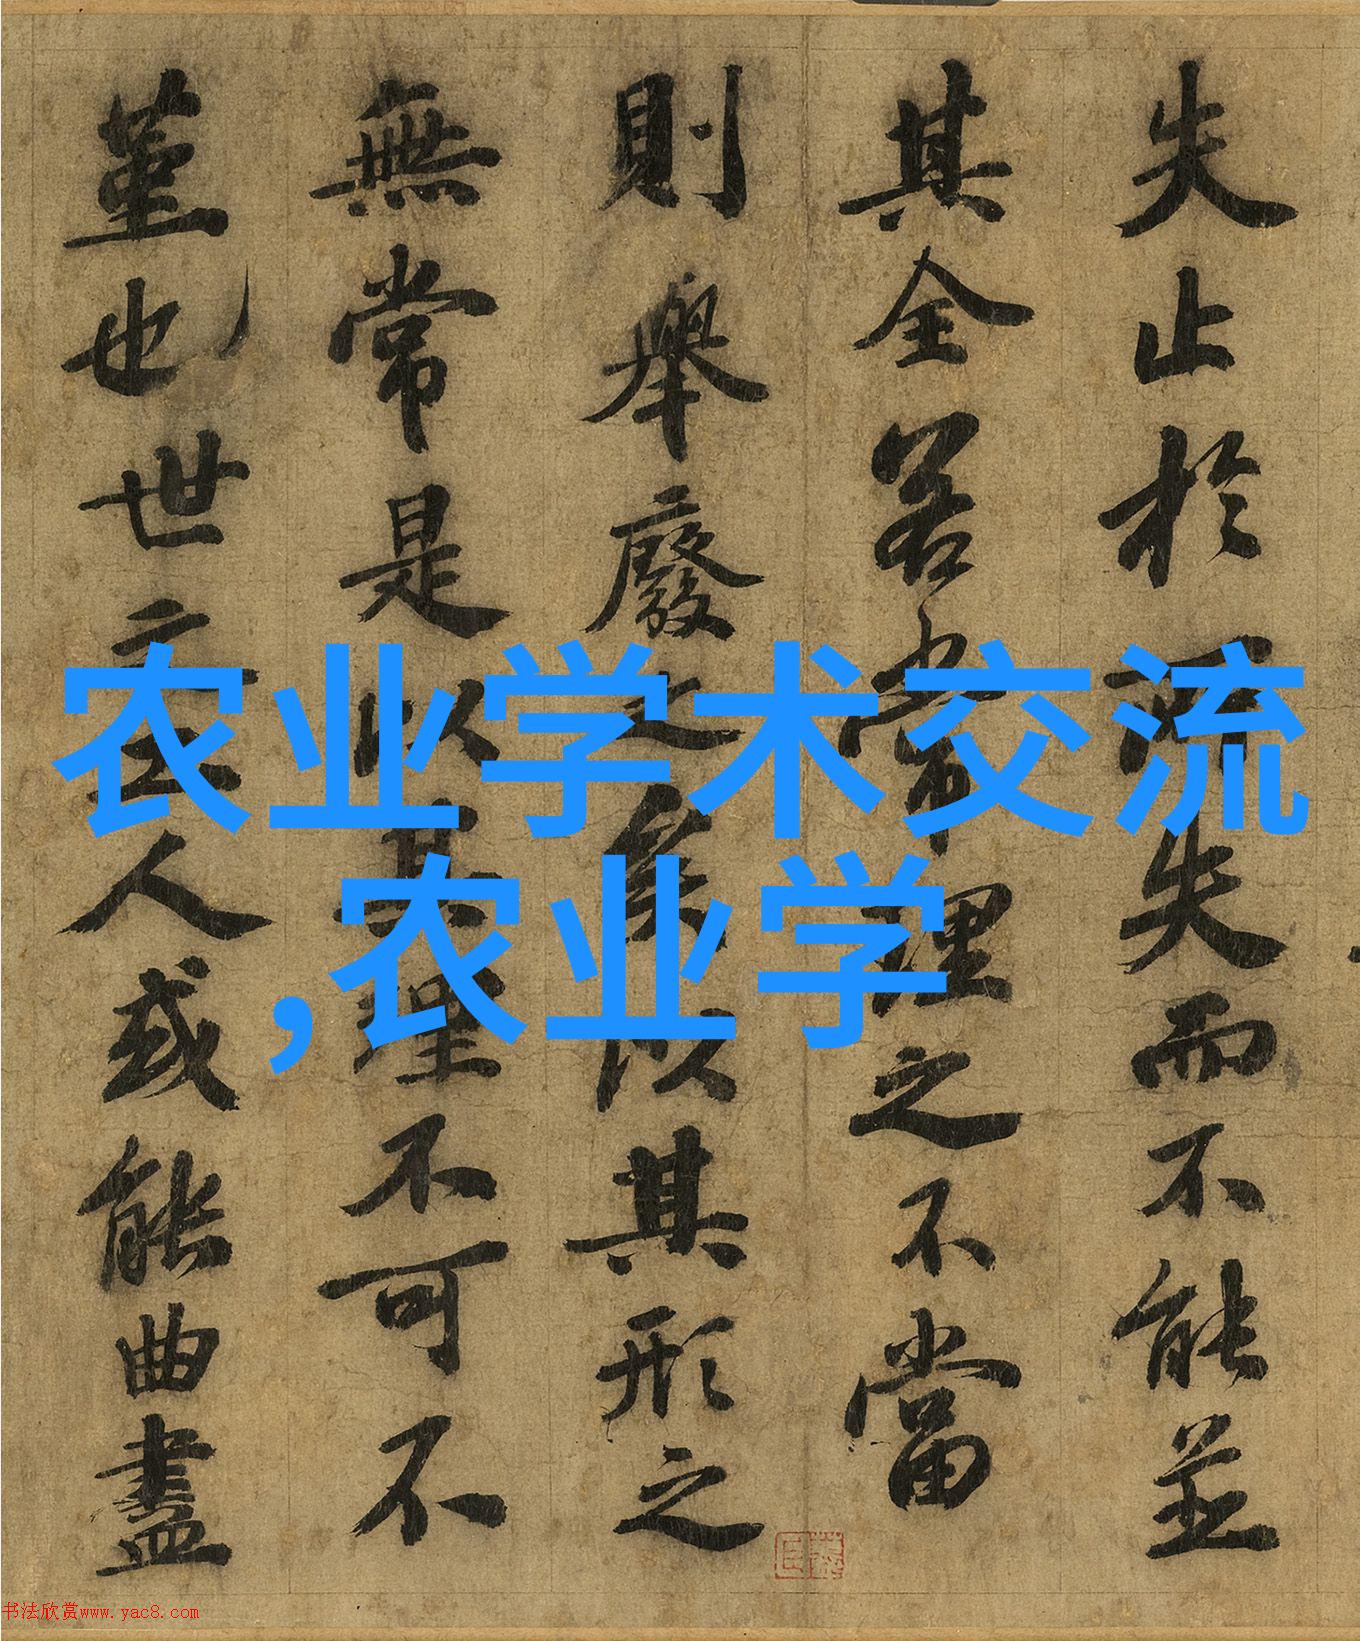 失止於所失而不能並
其全若常理之不當
則舉廢之矣以其形之
無常是以其理不可不
堇也世之工人或能曲盡
农业学术交流
,农业学
书法欣赏www.yac8.com